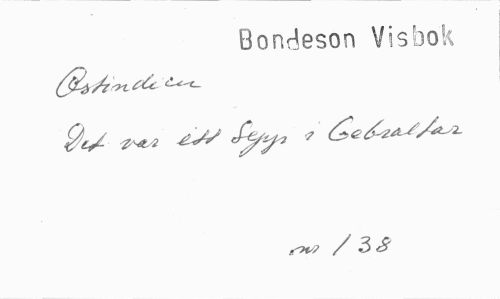 Bondeson Visbok
Ostindien
Det var ett Sepp i Gebraltar
nr 138